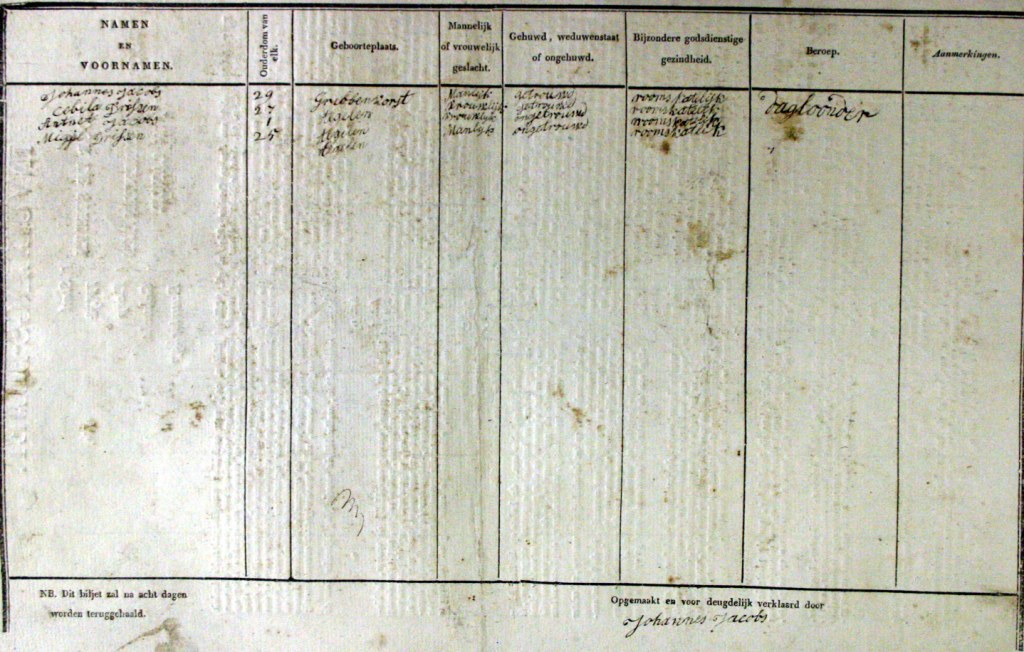 NAMEN
EN
VOORNAMEN.
Ouderdom van elk.
Geboorteplaats.
Mannelijk
of vrouwelijk
geslacht.
Gehuwd, weduwenstaat
of ongehuwd.
Bijzondere godsdienstige
gezindheid.
Beroep.
Aanmerkingen.
Johannes Jacobs 29 Grubbenvorst Manlijk getrouwd rooms katelijk dagloonder
Cebila 27 Haelen vrouwlijk getrouwd rooms katelijk
Jacobs 1 Haelen vrouwlijk ongetrouwd rooms katelijk
25 Haelen Manlijk ongetrouwd rooms katelijk
NB. Dit biljet zal na acht dagen
worden teruggehaald.
Opgemaakt en voor deugdelijk verklaard door
Johannes Jacobs